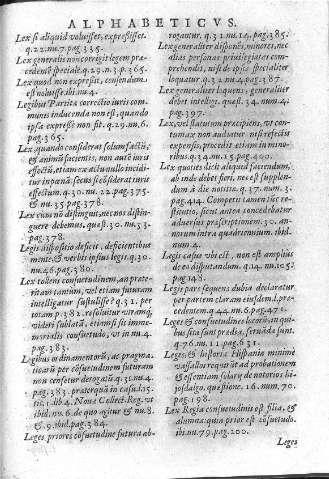 ALPHABETICVS.
Lex si aliquid voluisset, expressisset.
q.22.nu.7.pag.335.
Lex generalis non corregit legem præ-
cedentē specialē.q.29.n.3.p.365.
Lex quod non expressit, censendum
est noluisse.ibi.nu.4.
Legibus Partitæ correctio iuris com-
munis inducenda non est, quando
ipsa expressè non fit. q.29.nu.6.
pag.365.
Lex quando considerat solum factū,
& animū facientis, non autē iuris
effectū, et iam ex actu nullo incidi-
tur in pœnā: secus si cōsiderat iuris
effectum. q.30. nu.22.pag.375.
& nu.35.pag.378.
Lex cùm nō distinguit, nec nos distin-
guere debemus, quæst.30. nu.53.
pag.378.
Legis dispositio deficit, deficientibus
mente, & verbis ipsius legis. q.30.
nu.46.pag.380.
Lex tollens consuetudinem, an præte-
ritam tantum, vel etiam futuram
intelligatur sustulisse? q.31. per
totam p.382. resoluitur vtramq;
videri sublatā, etiamsi sit imme-
morialis consuetudo, vt in nu.4.
pag.383.
Legibus ordinamentorū, ac pragma-
ticarū per cōsuetudinem futuram
non censetur derogatū.q.31.nu.4.
pag.383. præterquā in casu l.15.
tit.1.lib.4. Nouæ Collect. Reg. vt
ibid.nu.6. de quo agitur & nu.8.
& 9.ibid.pag.384.
Leges priores cōsuetudine futura ab-
rogantur. q.31.nu.14.pag.385.
Lex generaliter disponēs, minores, nec
alias personas priuilegiatas com-
prehendit, nisi de ipsis specialiter
loquatur. q.31.nu.4.pag.387.
Lex generaliter loquens, generaliter
debet intelligi. quæst.34. num.4.
pag.397.
Lex, vel statutum præcipiens, vt con-
tumax non audiatur nisi refectis
expensis, procedit etiam in mino-
ribus.q.34.nu.15.pag.400.
Lex quoties dicit aliquid faciendum,
ab inde debet fieri, nec est supplen-
dum à die notitiæ. q.37. num.3.
pag.414. Competit tamen iure re-
stitutio, sicut antea concedebatur
aduersus præscriptionem.30. an-
norum intra quadriennium. ibid.
num.4.
Legis casus vbi est, non est ampliùs
de eo disputandum. q.14. nu.105.
pag.148.
Legis pars sequens dubia declaratur
per partem claram eiusdem.l.præ-
cedentem.q.44.nu.6.pag.471.
Leges & consuetudines locorū, an qui-
bus sita sunt prædia, seruāda sunt.
q.76.nu.11.pag.631.
Leges, & historiæ Hispaniæ minimè
vassallos requirūt ad probationem
& essentiam solarij de notorios hi-
josdalgo. quæstione. 16.num.70.
pag.198.
Lex Regia consuetudinis est filia, &
alumna: quia prior est cōsuetudo.
ibi.nu.79.pag.200.
Leges